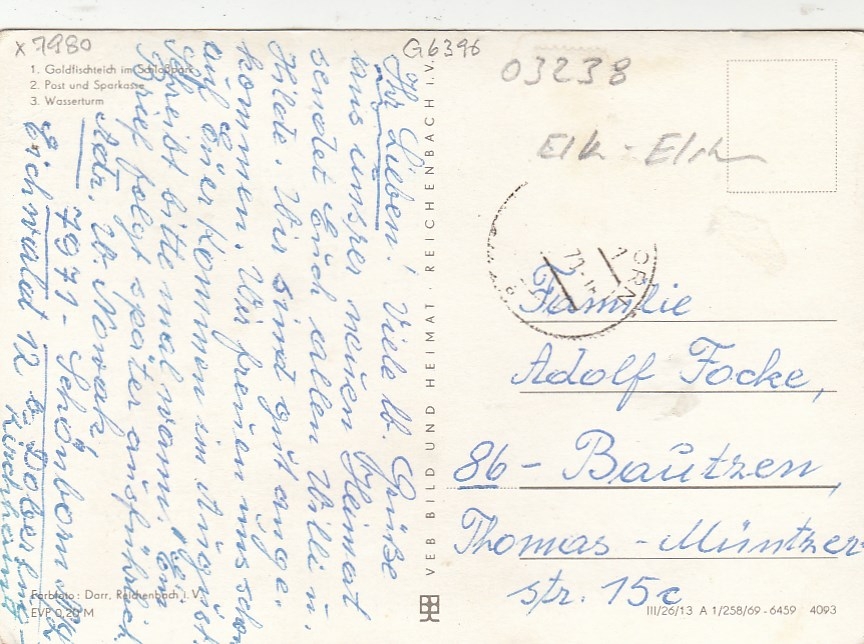 x 7980
G6396
03238
1. Goldfischteich im Schloßpark
2. Post und Sparkasse
3. Wasserturm
Ihr Lieben! Viele lb. Grüße
aus unsrer neuen Heimat
sendet Euch allen Willi u.
Hilde. Wir sind gut ange-
kommen. Wir freuen uns schon
auf Euer Kommen im August.
Schreibt bitte mal wann. Ein
Brief folgt später ausführlich
Adr. W. Nowak
7971 - Schönborn
Eichwald 12 b. Doberlug-
Kirchhain
Farbfoto: Darr, Reichenbach i. V.
EVP 0,20 M
VEB BILD UND HEIMAT · REICHENBACH i. V.
Familie
Adolf Focke,
86 - Bautzen,
Thomas - Müntzer
str. 15c
III/26/13 A 1/258/69 - 6459 4093